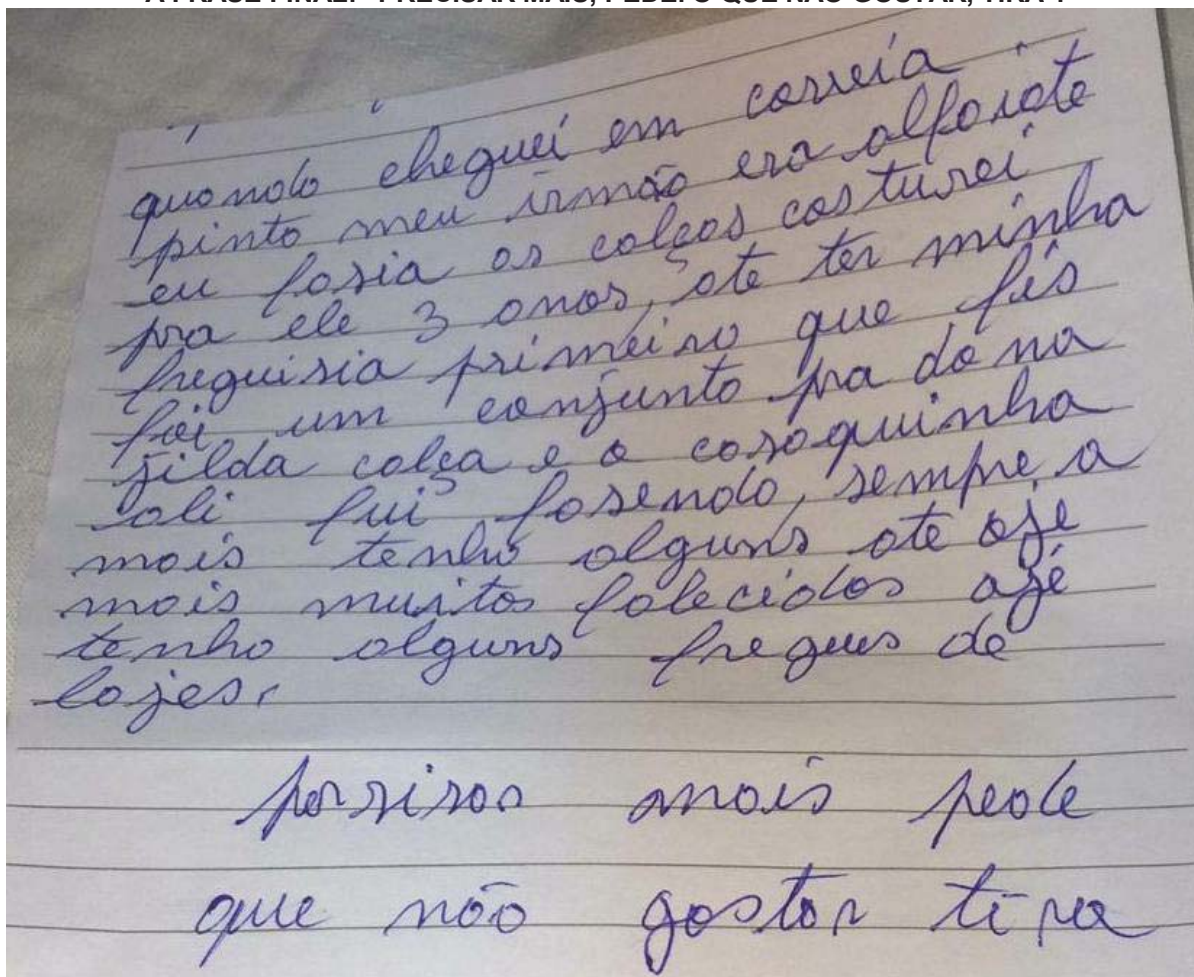 quando cheguei em correia
pinto meu irmão era alfaiate
eu fasia as calças costurei
pra ele 3 anos, ate ter minha
freguisia primeiro que fés
foi um conjunto pra dona
zilda calça e a casaquinha
ali fui fasendo, sempre, a
mais tenho alguns ate oje
mais muitos falecidos ajé
tenho alguns fregues de
lojes,
persisar mais pede
que não gostar tira